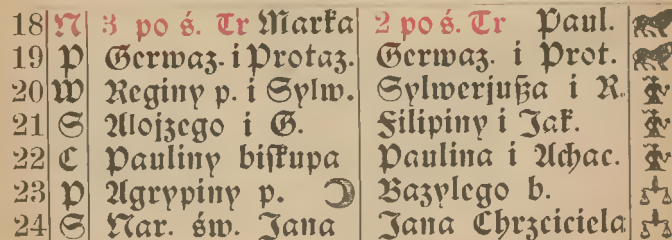 18 N 3 po ś. Tr Marka 2 po ś. Tr Paul.
19 P Gerwaz. i Protaz. Gerwaz. i Prot.
20 W Reginy p. i Sylw. Sylwerjußa i R.
21 S Alojzego i G. Filipiny i Jak.
22 C Pauliny biskupa Paulina i Achac.
23 P Agrypiny p. Bazylego b.
24 S Nar. św. Jana Jana Chrzciciela